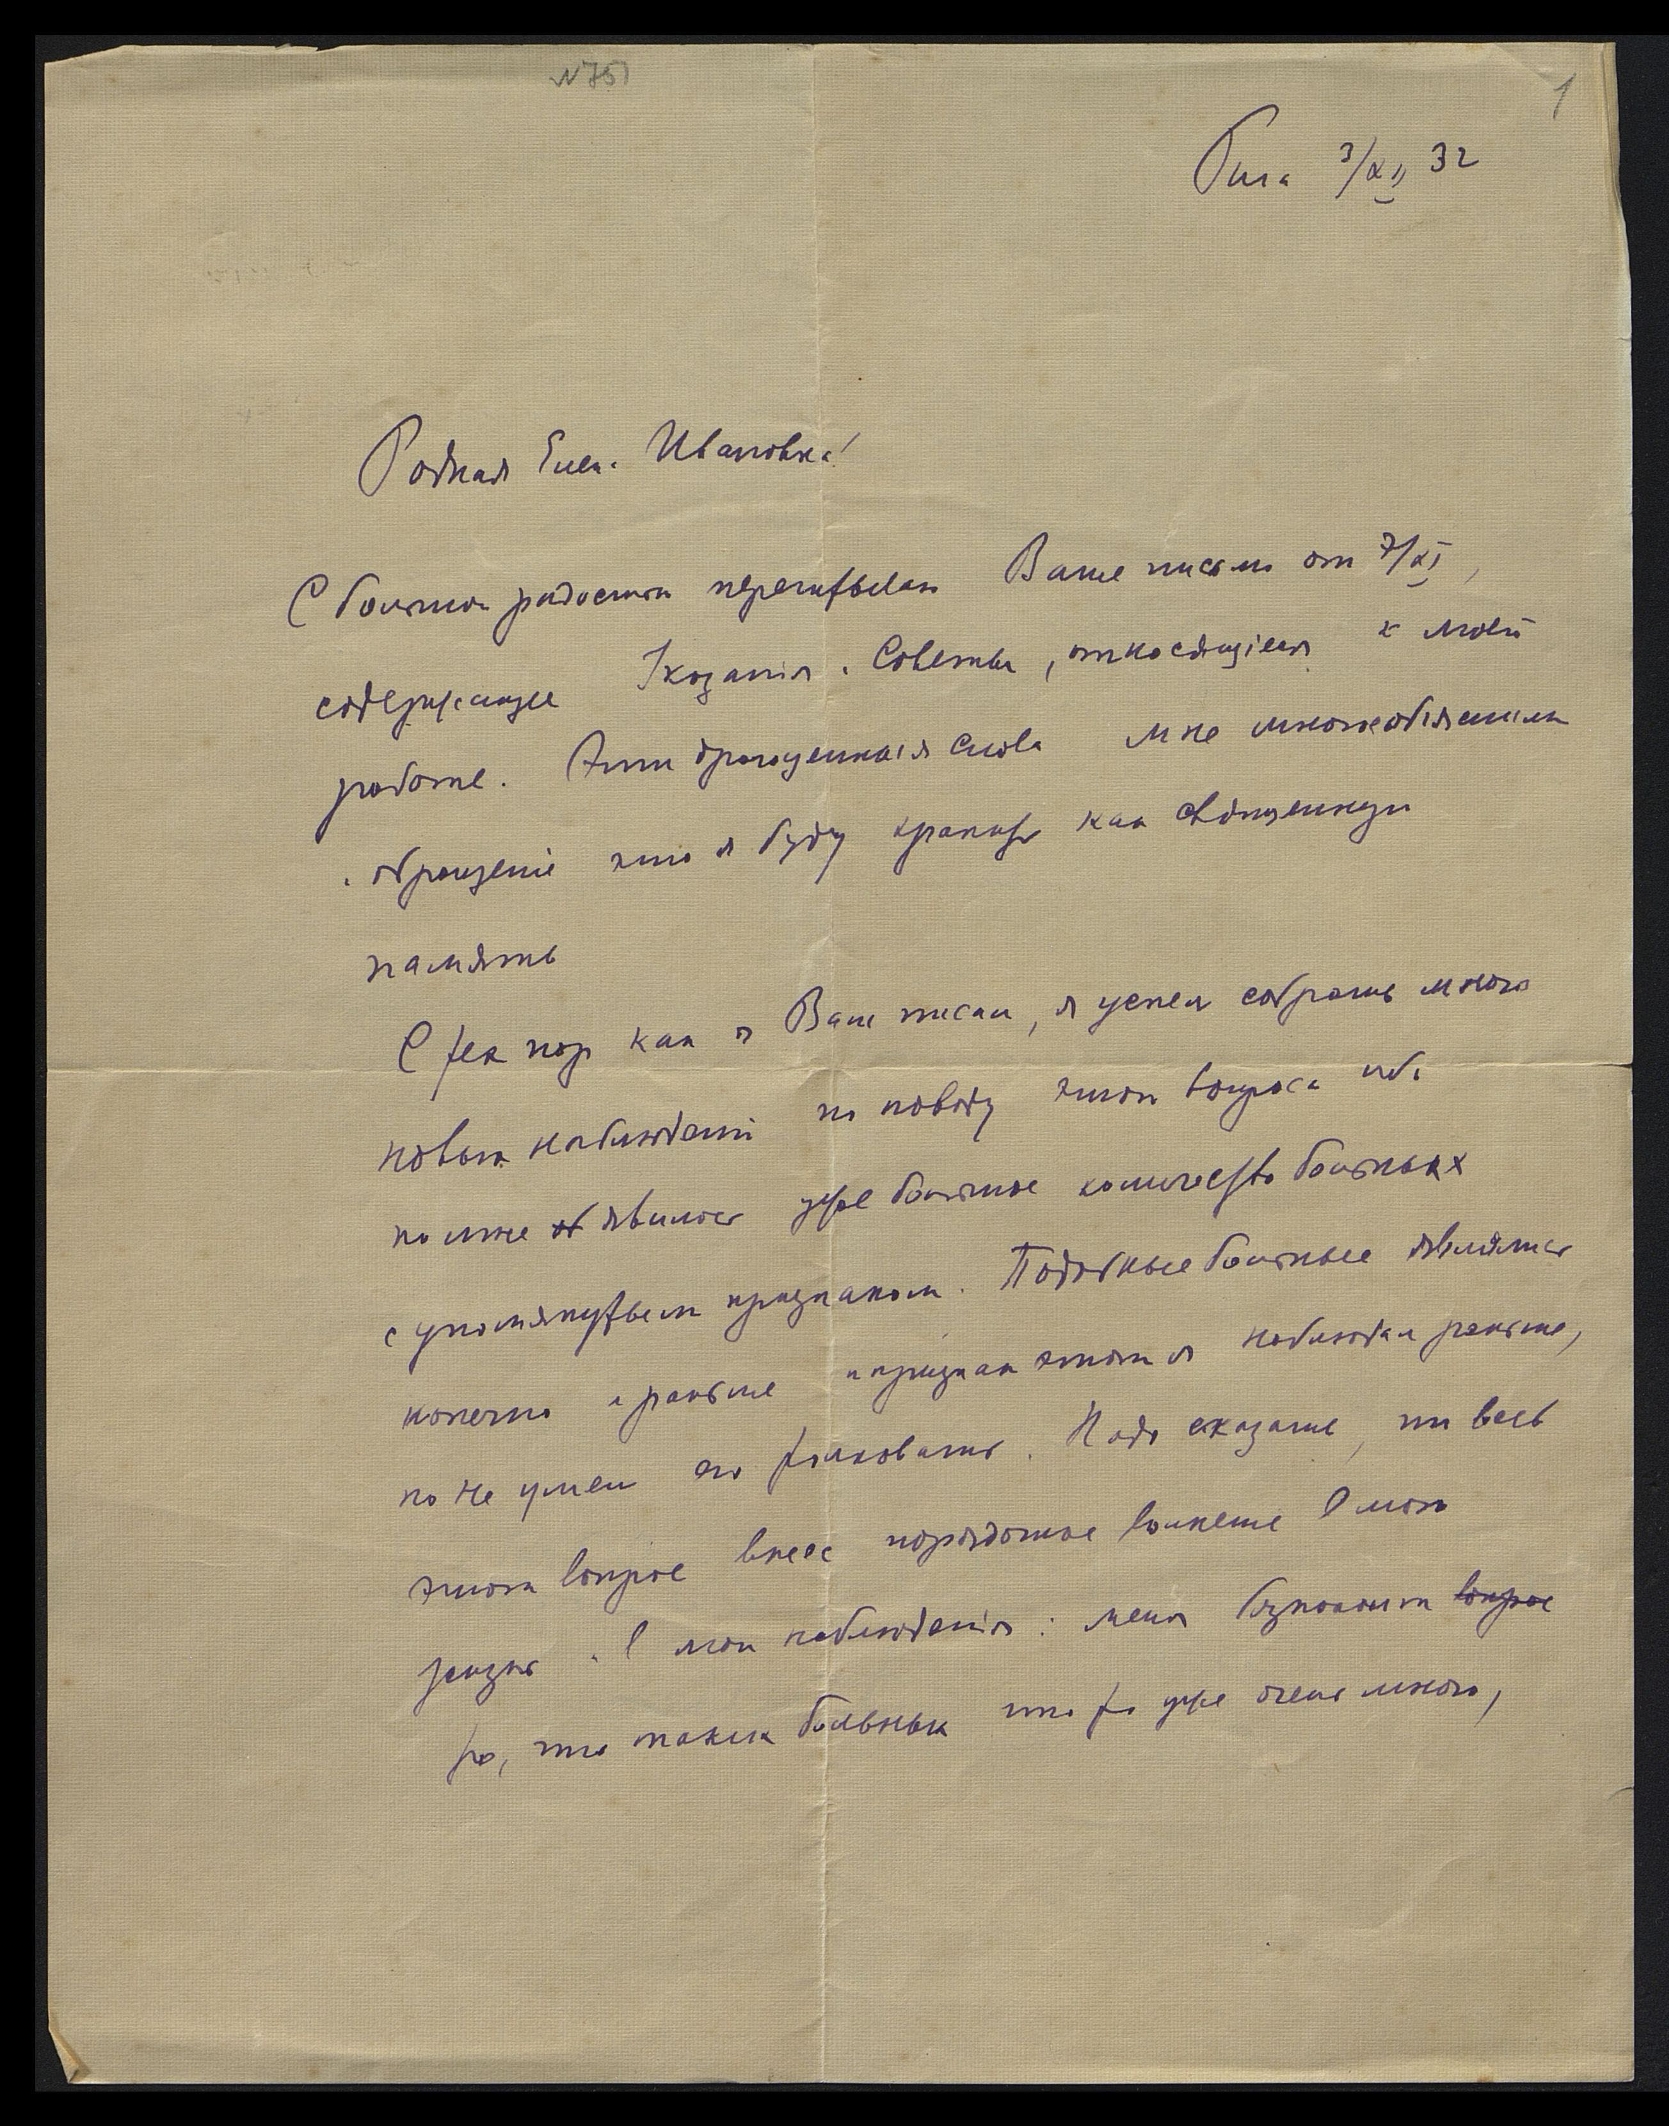 N 751
1
Рига 3/XII 32
Родная Елена Ивановна!
С большой радостью перечитываю Ваше письмо от 7/XI,
содержащее Указания и Советы, относящіеся к моей
работе. Эти драгоценныя Слова мне
и обращеніе это я буду хранить как священную
память
С тех пор как я Вам писал, я успел собрать много
новых наблюденій по поводу этого вопроса ибо
ко мне явилось уже большое количество больных
с упомянутым признаком. Подобные больные являлись
конечно и раньше и признак этот я наблюдал раньше,
но не умел его толковать. Надо сказать, что весь
этот вопрос внес порядочное волненіе в мою
жизнь и в мои наблюденія: меня безпокоит вопрос
то, что таких больных что то уже очень много,